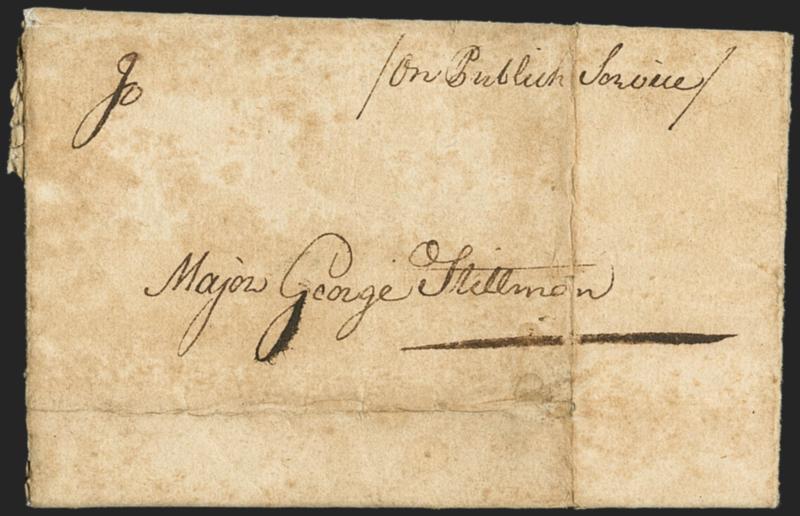 To
/On Publick Service/
Major George Stillman